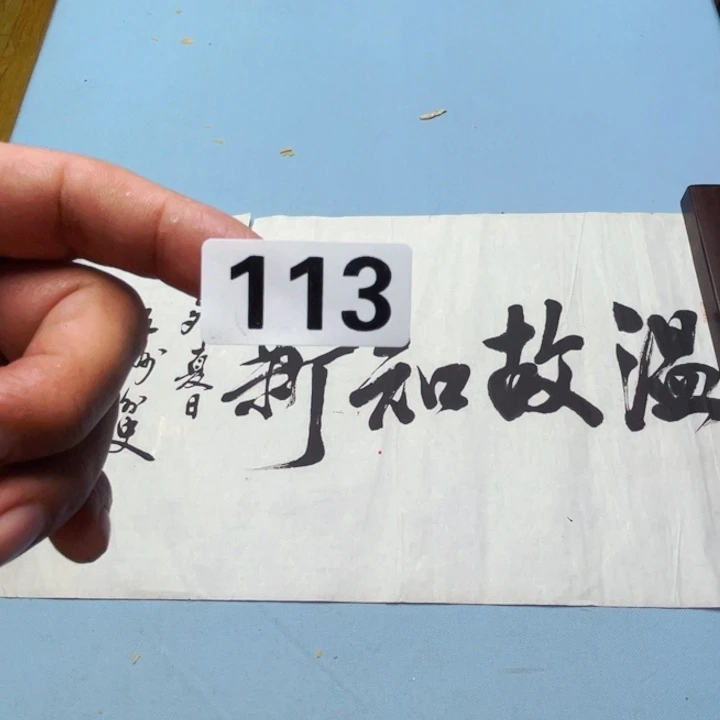 113
温故知新
夏日